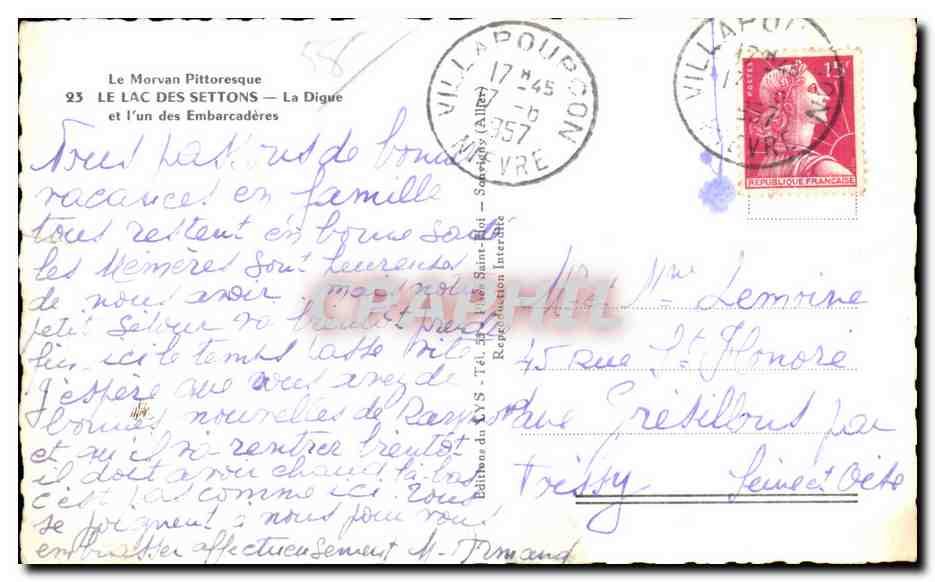 58
Le Morvan Pittoresque
23 LE LAC DES SETTONS — La Digue
et l'un des Embarcadères
VILLAPOURÇON
17 H 45
17 - 6
1957
NIEVRE
VILLAPOURÇON
17 H 45
1957
NIEVRE
POSTES
15F
REPUBLIQUE FRANÇAISE
Nous passons de bonne
vacances en famille
tous restent en bonne santé
les Mémères sont heureuses
de nous avoir, mais notre
petit séjour va bientôt prendre
fin, ici le temps passe vite
J'espère que vous avez de
bonnes nouvelles de Raymond
et qu'il va rentrer bientôt
il doit avoir chaud là bas
c'est pas comme ici. Tous
se joignent à nous pour vous
embrasser affectueusement M. Armand
Editions du LYS - Tél. 55 - Place Saint-Eloi - Souvigny (Allier)
Reproduction Interdite
CPAPHIL
Mr Mme Lemoine
45 rue St Honoré
Grésillons par
Trissy Seine et Oise